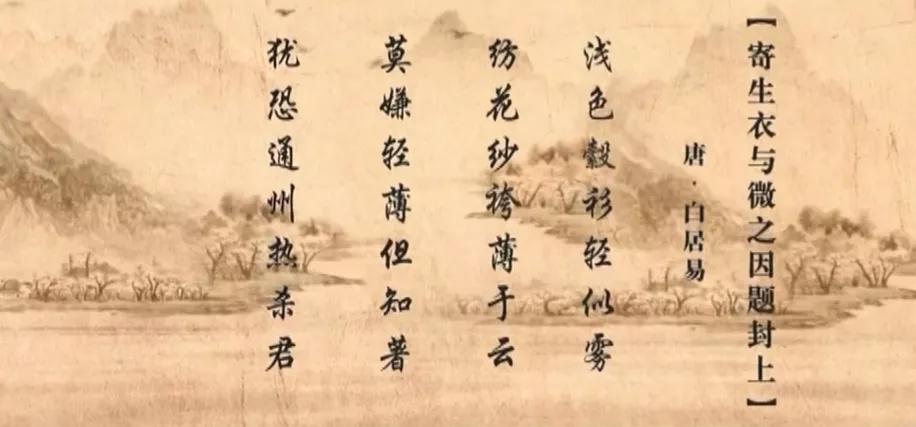 【寄生衣与微之因题封上】
唐·白居易
浅色縠衫轻似雾
纺花纱袴薄于云
莫嫌轻薄但知著
犹恐通州热杀君